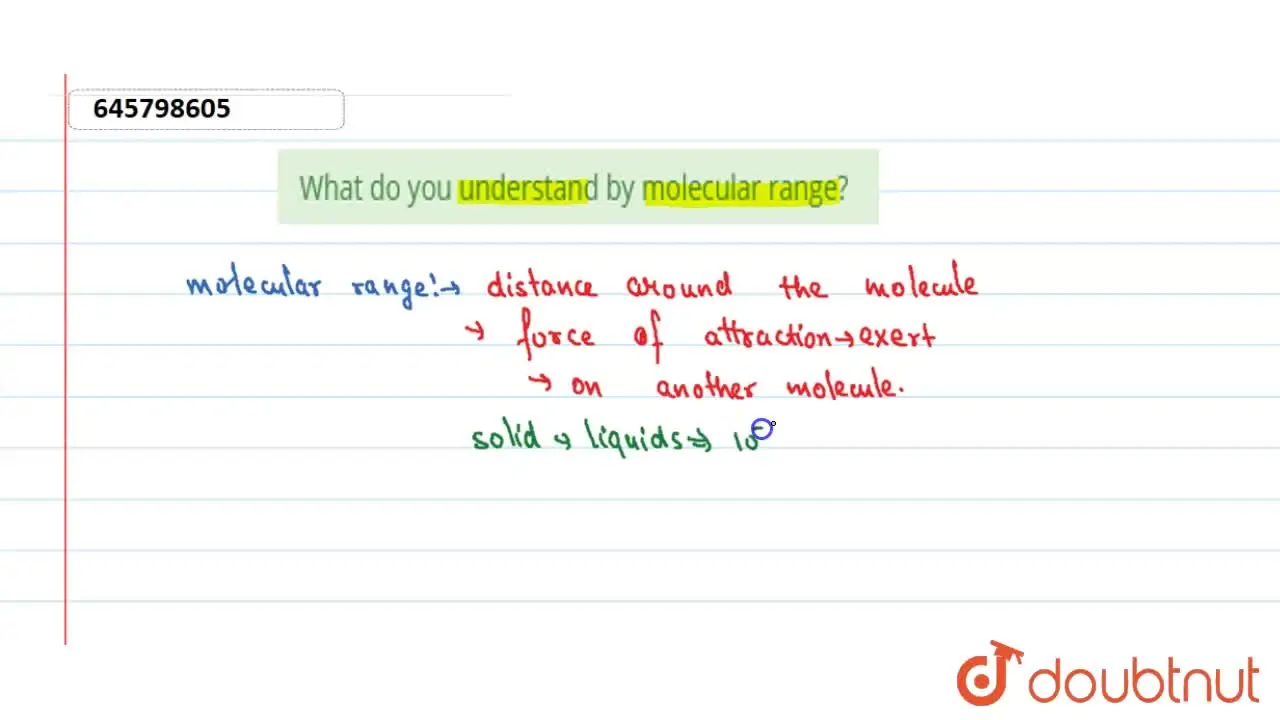 645798605
What do you understand by molecular range?
molecular range:→ distance around the molecule
→ force of attraction→exert
→ on another molecule.
solid → liquids⇒ 10⁻
doubtnut